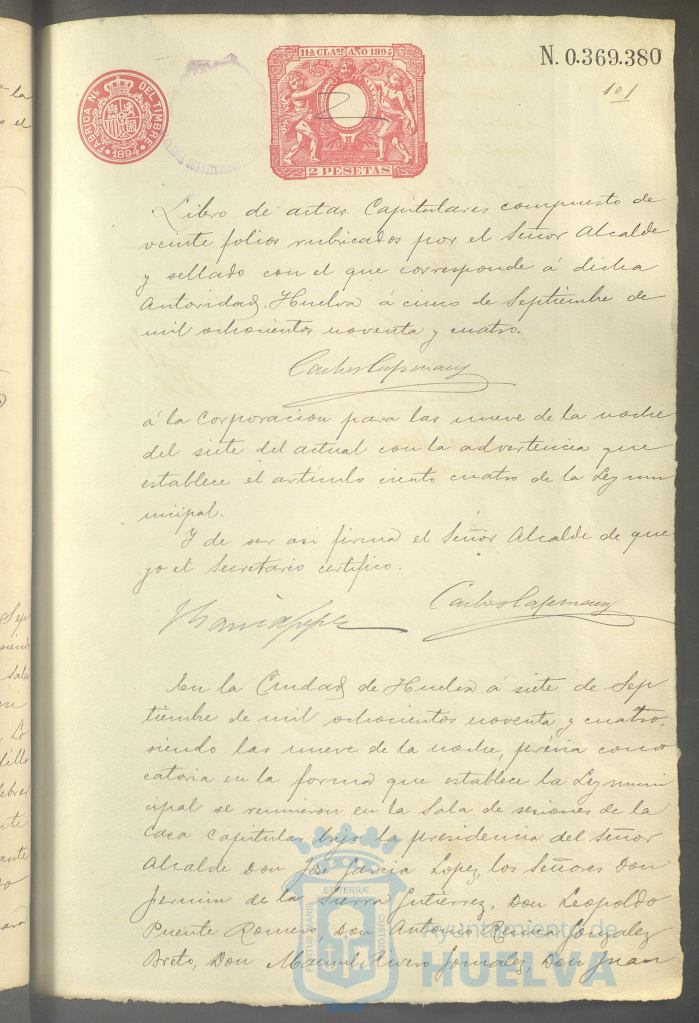 11ª CLASE AÑO 1894
N. 0.369.380
101
FABRICA NL. DEL TIMBRE
1894
2 PESETAS
Libro de actas Capitulares compuesto de
veinte folios rubricados por el Señor Alcalde
y sellado con el que corresponde á dicha
Autoridad. Huelva á cinco de Septiembre de
mil ochocientos noventa y cuatro.
Carlos Capmany
á la Corporacion para las nueve de la noche
del siete del actual con la advertencia que
establece el artículo ciento cuatro de la Ley mu
nicipal.
Y de ser asi firma el Señor Alcalde de que
yo el Secretario certifico.
Carlos Capmany
En la Ciudad de Huelva á siete de Sep
tiembre de mil ochocientos noventa y cuatro,
siendo las nueve de la noche, prévia convo
catoria en la forma que establece la Ley muni
cipal se reunieron en la Sala de sesiones de la
Casa Capitular bajo la presidencia del Señor
Alcalde Don José García Lopez, los Señores Don
Fermin de la Sierra Gutiérrez, Don Leopoldo
Puente Romero, Don Antonio Gonzalez
Don Manuel Rivero Gonzalez, Don Juan
PORTUS MARIS ET TERRÆ CUSTODIA
Ayuntamiento de
HUELVA